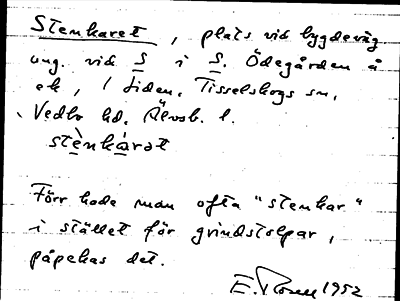 Stenkaret, plats vid bygdeväg
ung. vid S i S. Ödegården å
ek, 1 Liden, Tisselskogs sn,
Vedbo hd, Älvsb. l.
stènkárat
Förr hade man ofta "stenkar"
i stället för grindstolpar,
påpekas det.
E. Rosell 1952